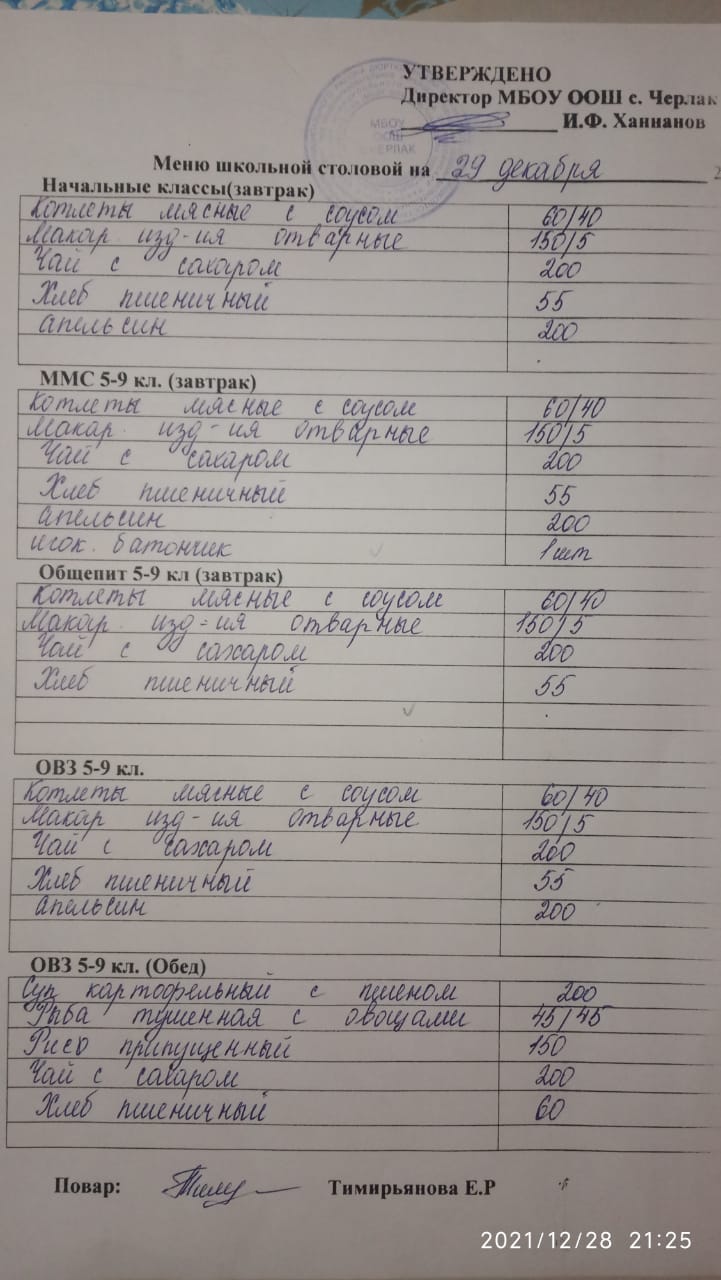 УТВЕРЖДЕНО
Директор МБОУ ООШ с. Черлак
И.Ф. Ханнанов
МБОУ
ООШ
ЧЕРЛАК
Меню школьной столовой на 29 декабря 2
Начальные классы(завтрак)
Котлеты мясные с соусом 60/40
Макар. изд-ия отварные 150/5
Чай с сахаром 200
Хлеб пшеничный 55
апельсин 200
ММС 5-9 кл. (завтрак)
Котлеты мясные с соусом 60/40
Макар. изд-ия отварные 150/5
Чай с сахаром 200
Хлеб пшеничный 55
апельсин 200
шок. батончик 1 шт
Общепит 5-9 кл (завтрак)
Котлеты мясные с соусом 60/40
Макар. изд-ия отварные 150/5
Чай с сахаром 200
Хлеб пшеничный 55
ОВЗ 5-9 кл.
Котлеты мясные с соусом 60/40
Макар изд-ия отварные 150/5
Чай с сахаром 200
Хлеб пшеничный 55
апельсин 200
ОВЗ 5-9 кл. (Обед)
Суп картофельный с пшеном 200
Рыба тушенная с овощами 45/45
Рис припущенный 150
Чай с сахаром 200
Хлеб пшеничный 60
Повар: Тимирьянова Е.Р
2021/12/28 21:25